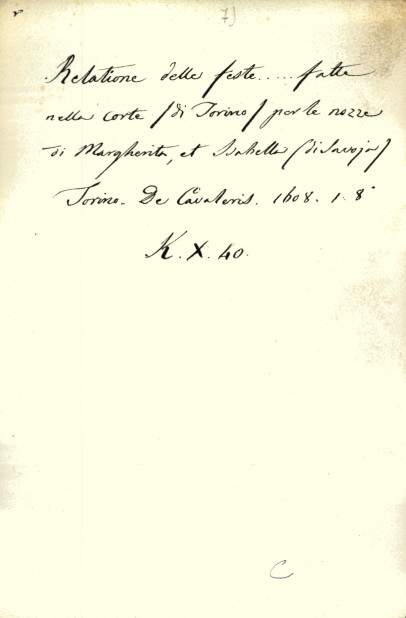 7)
Relatione delle feste..... fatte
nella corte (di Torino) per le nozze
di Margherita, et Isabella (di Savoja)
Torino. De Cavaleris. 1608. 1. 8°
K. X. 40.
C